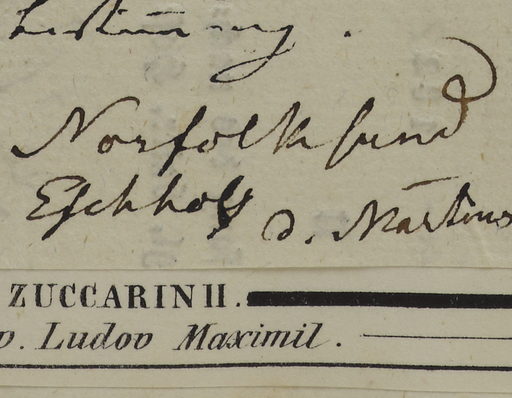 Norfolk sund
Eschholz d. Martius
ZUCCARINII.
v. Ludov Maximil.